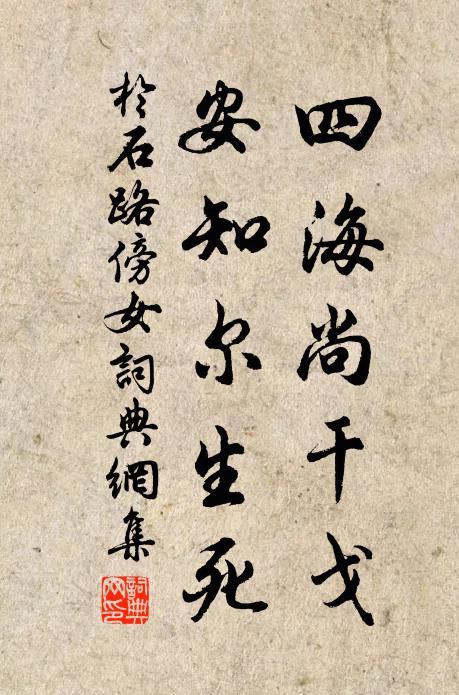 四海尚干戈
安知尔生死
於石路傍女詞典網集
詞典網印